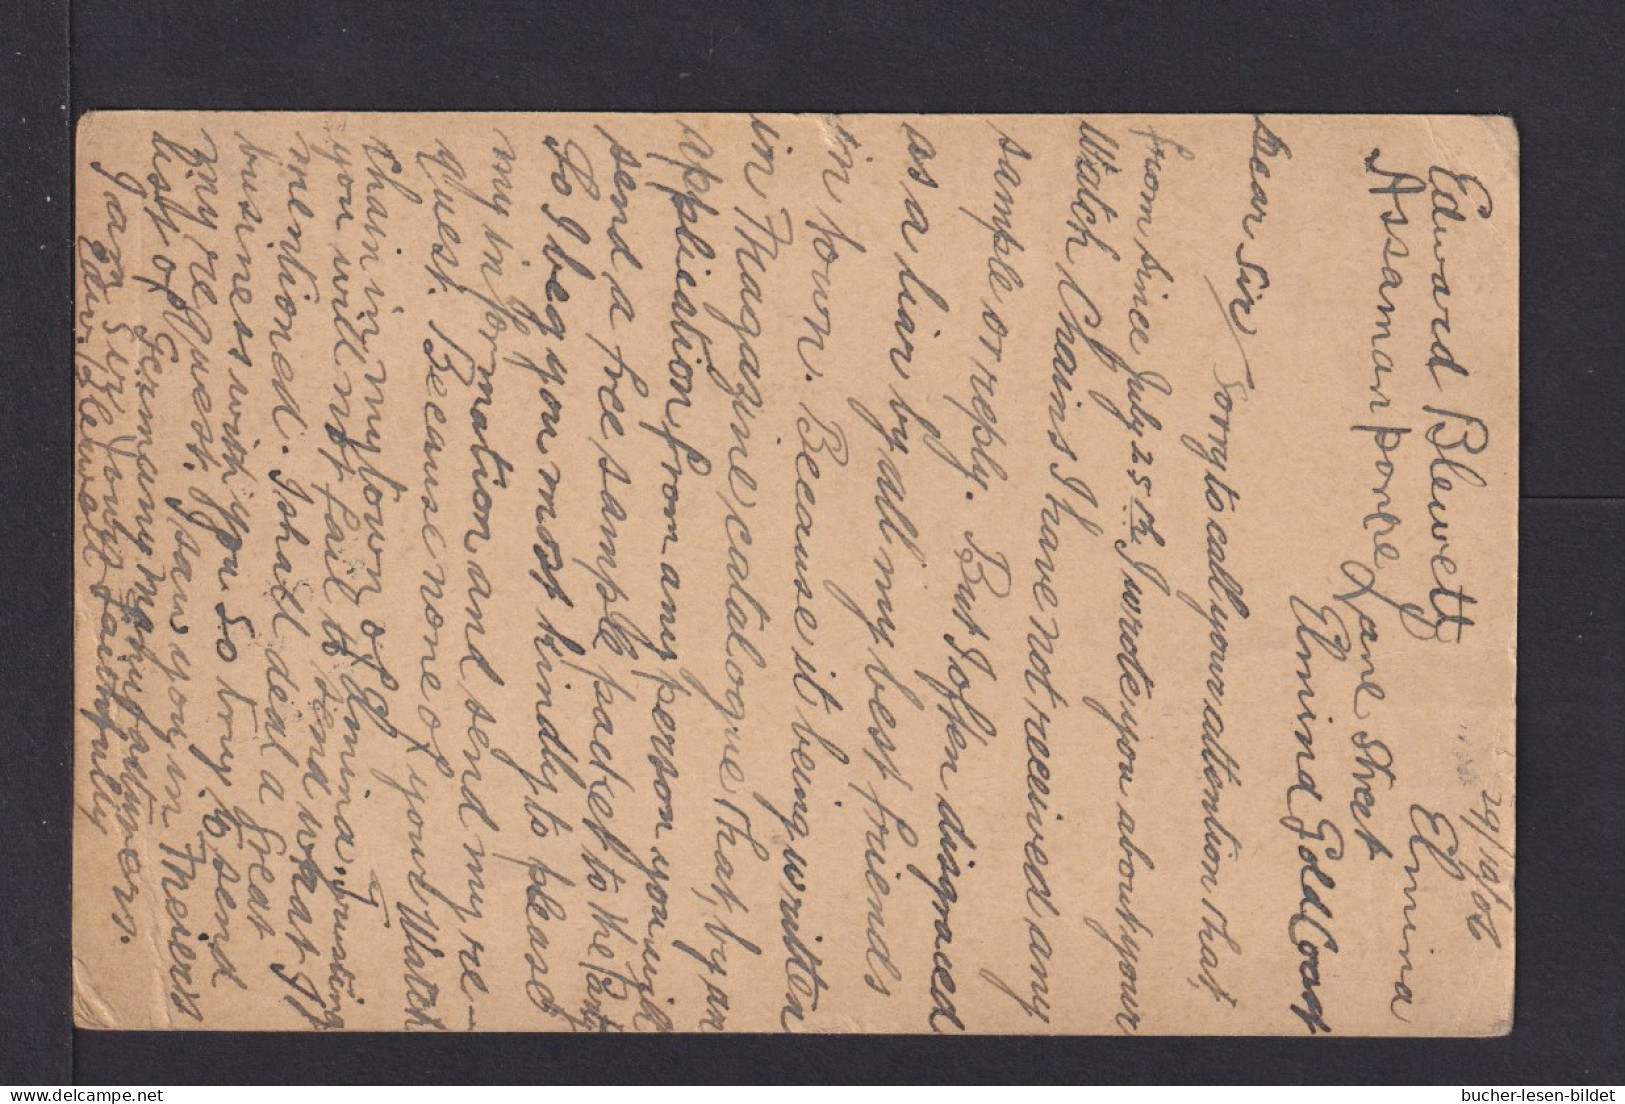 29/10/06
Edward Blewett Elmina
Assamanponle Lane Street
Elmina Gold Coast
Dear Sir/
Sorry to call your attention that,
from since July 25th I wrote you about your
Watch Chains I have not received any
sample or reply. But I often disgraced
as a liar by all my best friends
in town. Because it being written
in Magazine catalogue that, by an
application from any person you will
send a free sample packet to the Party
So I beg you most kindly to please
my information and send my re-
quest. Because none of your Watch
chain in my town of Elmina. Trusting
you will not fail to send what I
mentioned. I shall deal a great
business with you so try to send
my request. I saw you in Theiers
list of Germany manufacturers.
I am Sir Yours faithfully
Edw. Blewett
bucher-lesen-bildet